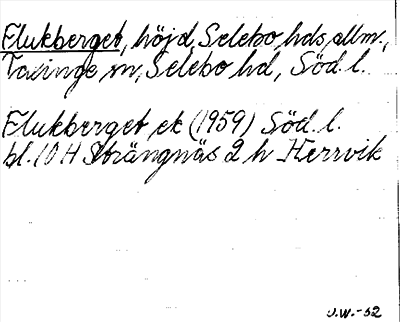 Flukberget, höjd, Selebo hds allm.,
Taxinge sn, Selebo hd, Söd. l.
Flukberget ek (1959) Söd. l.
bl. 10 H Strängnäs 2 h Herrvik
J.W.-52